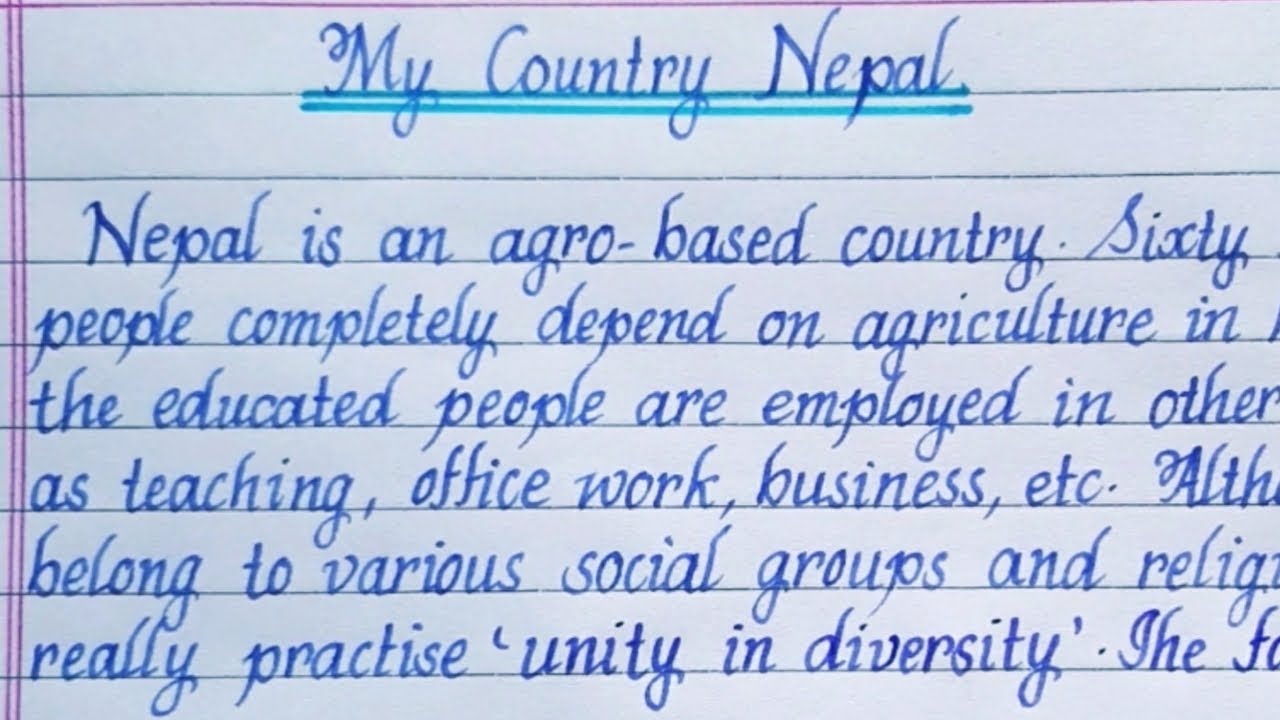 My Country Nepal
Nepal is an agro-based country. Sixty
people completely depend on agriculture in
the educated people are employed in other
as teaching, office work, business, etc.
belong to various social groups and
really practise 'unity in diversity'. The